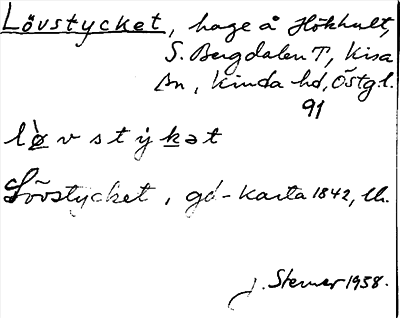 Lövstycket, hage å Hökhult,
S. Bergdalen T, Kisa
sn, Kinda hd, Östgl.
91
lø̀vstýkət
Lövstycket, gd-karta 1842, th.
J. Sterner 1938.